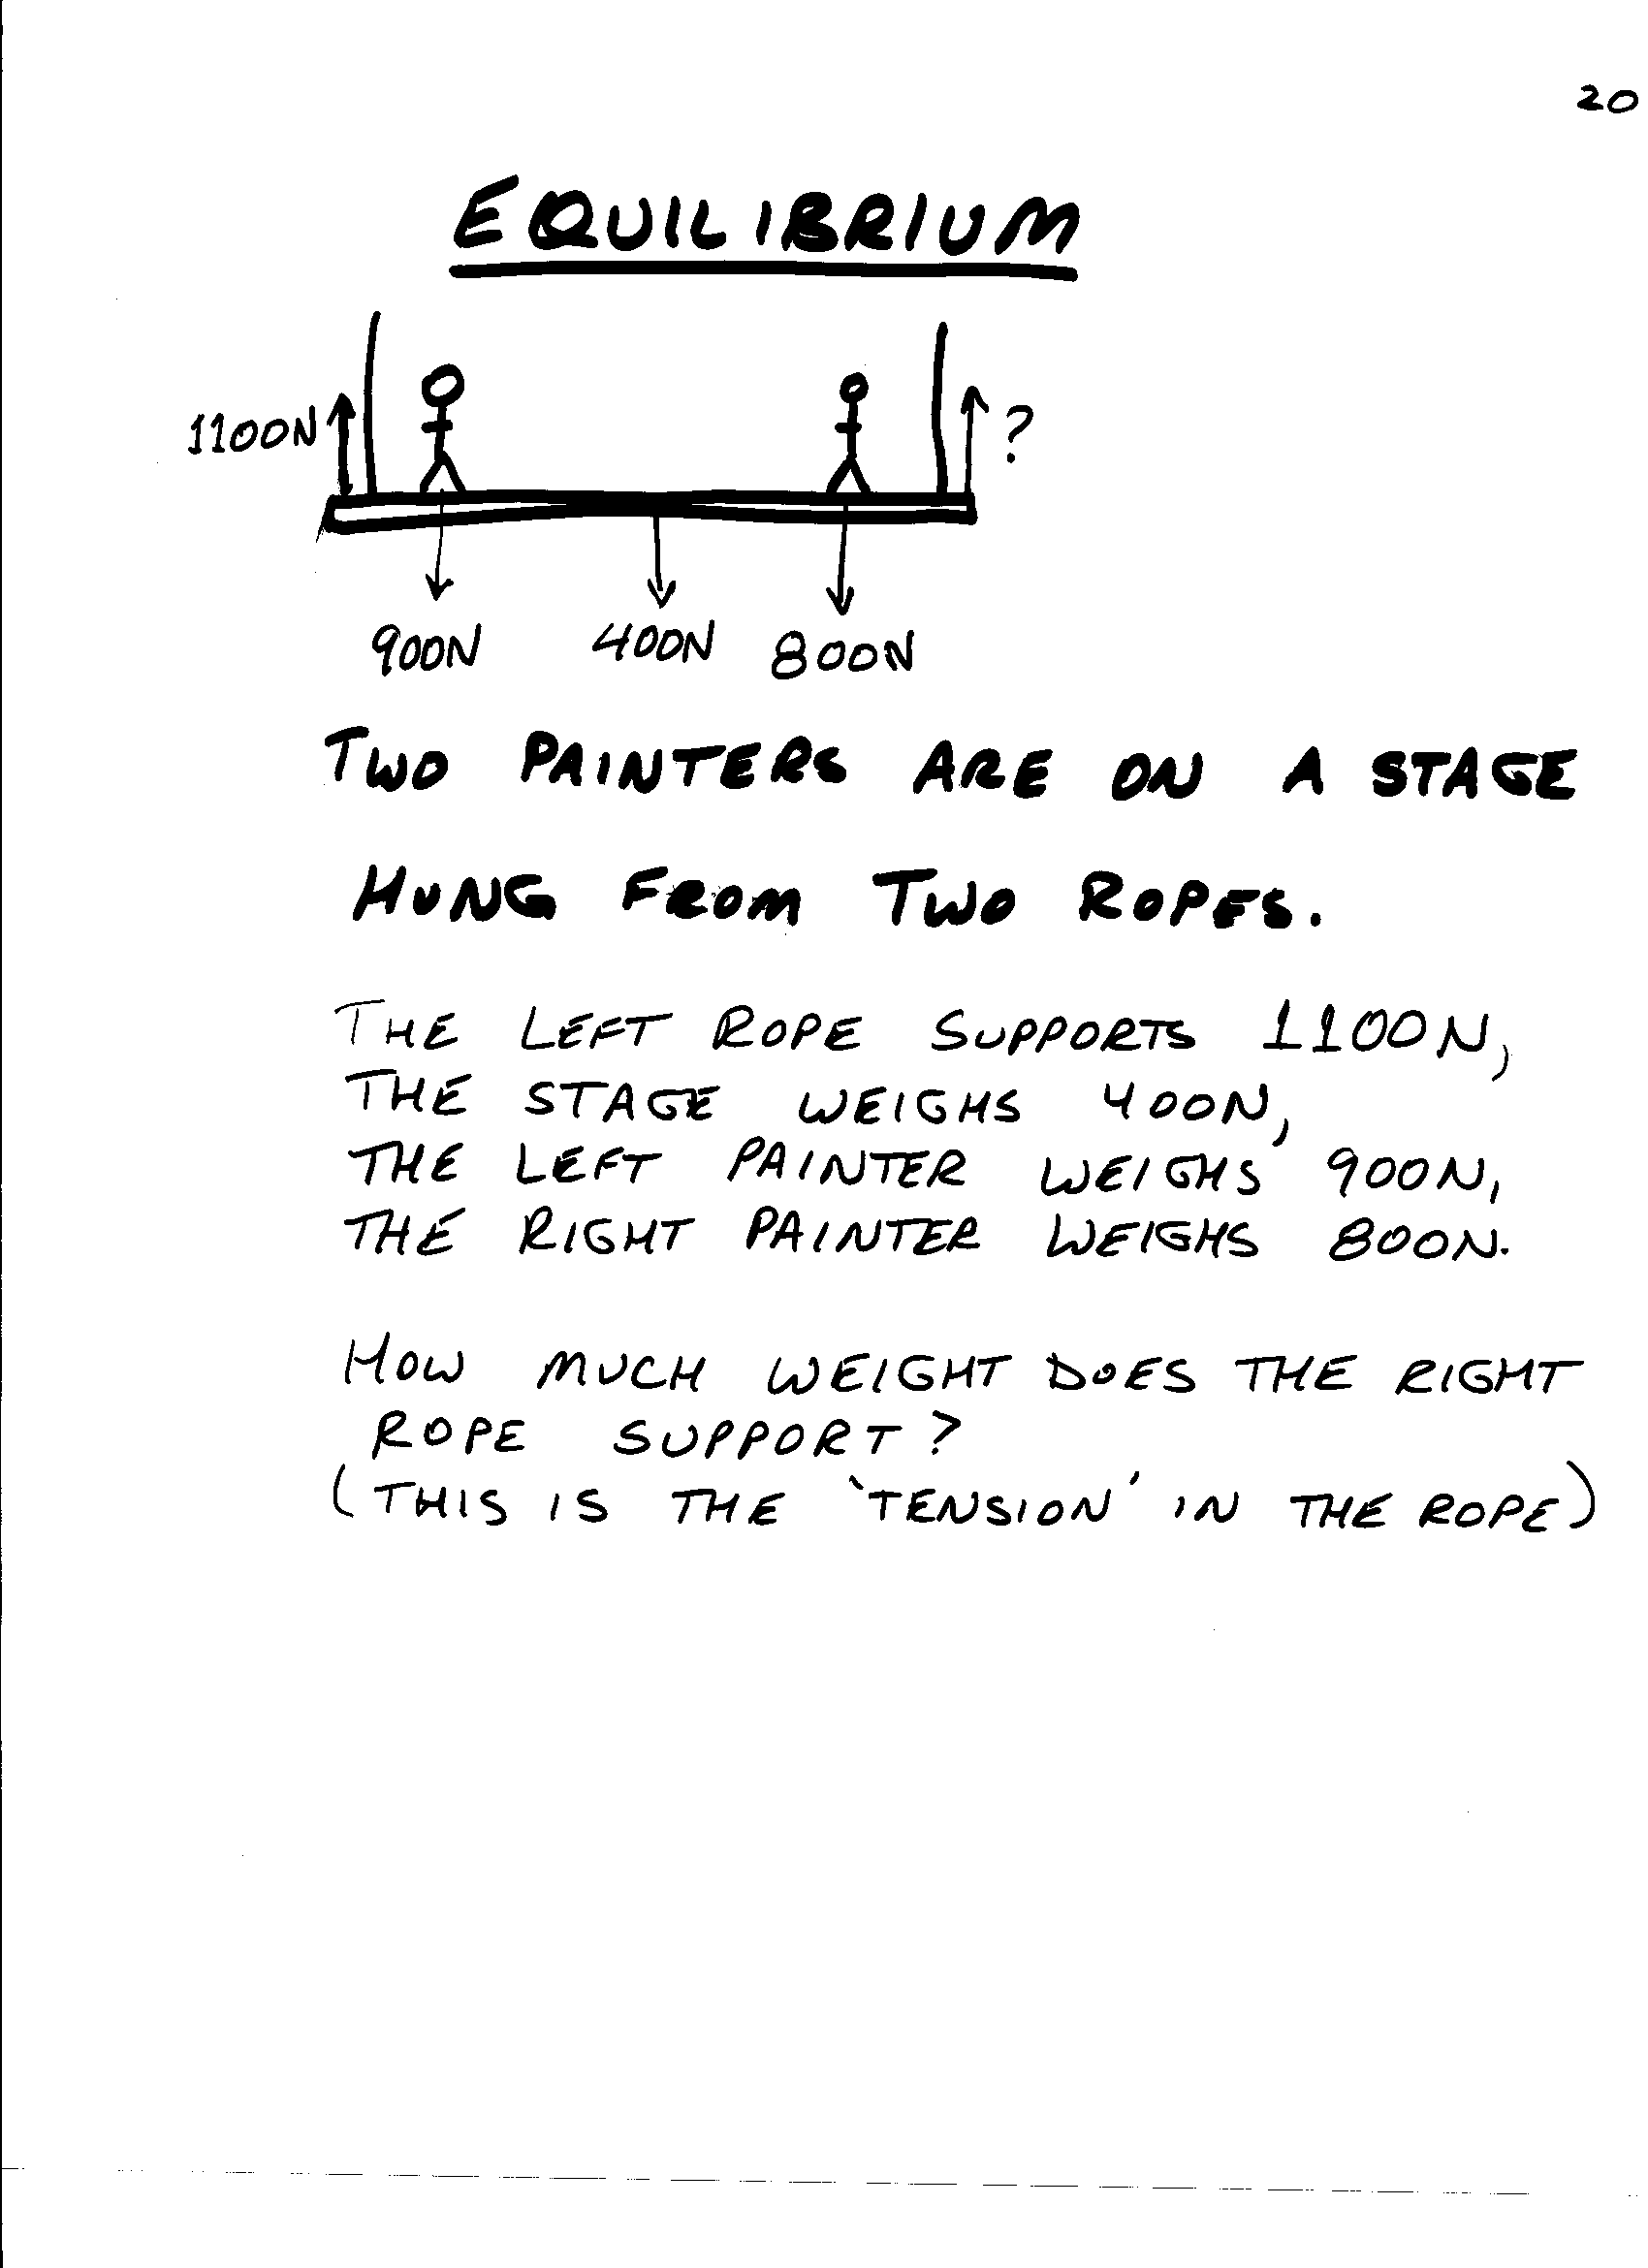 20
EQUILIBRIUM
1100N ?
900N 400N 800N
TWO PAINTERS ARE ON A STAGE
HUNG FROM TWO ROPES.
THE LEFT ROPE SUPPORTS 1100N,
THE STAGE WEIGHS 400N,
THE LEFT PAINTER WEIGHS 900N,
THE RIGHT PAINTER WEIGHS 800N.
HOW MUCH WEIGHT DOES THE RIGHT
ROPE SUPPORT?
(THIS IS THE 'TENSION' IN THE ROPE)